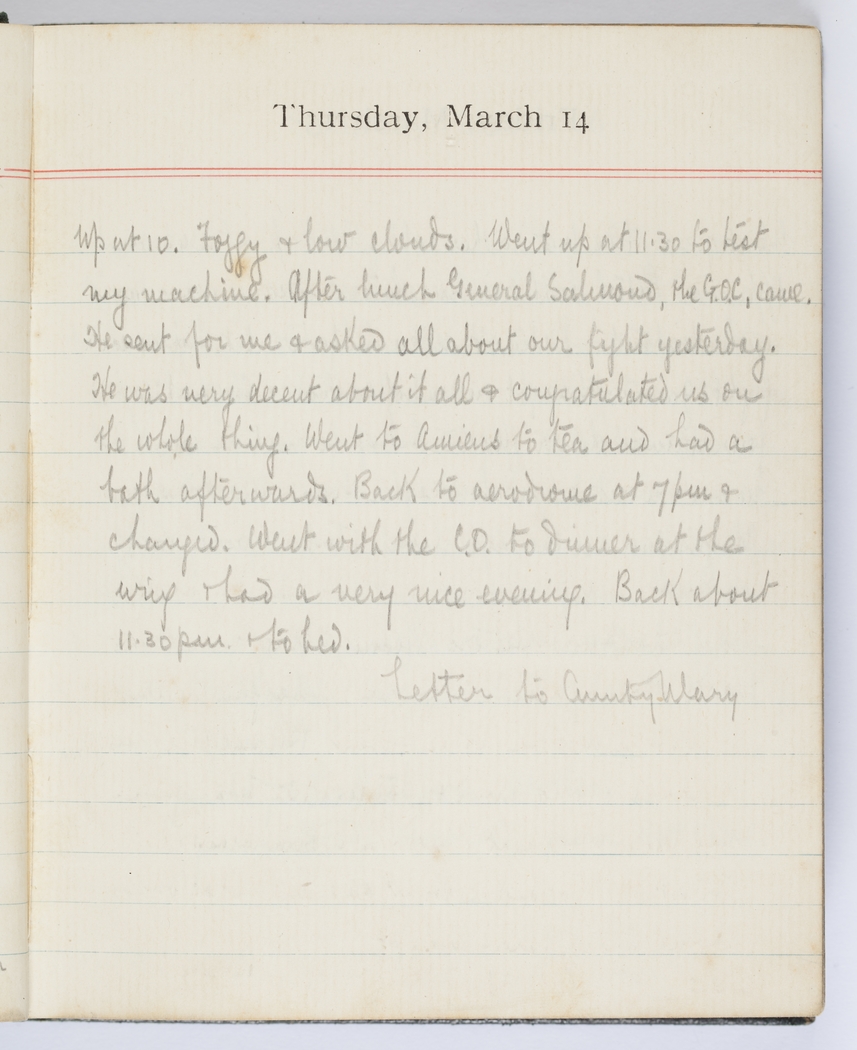 Thursday, March 14
Up at 10. Foggy & low clouds. Went up at 11.30 to test
my machine. After lunch General Salmond, the G.O.C, came.
He sent for me & asked all about our fight yesterday.
He was very decent about it all & congratulated us on
the whole thing. Went to Amiens to tea and had a
bath afterwards. Back to aerodrome at 7pm &
changed. Went with the C.O. to dinner at the
wing & had a very nice evening. Back about
11.30pm. & to bed.
Letter to Aunty Mary